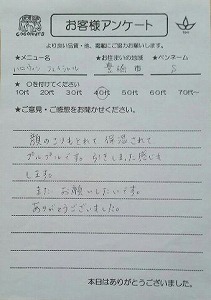 お客様アンケート
より良い品質・技、意識にご協力お願いします。
★メニュー名 ★お住まいの地域 ★ペンネーム
ハロウィン フェイシャル 豊崎市 S
★ ○を付けてください
10代 20代 30代 40代 50代 60代 70代〜
★ご意見・ご感想をお聞かせください。
顔のこりもとれて 保湿されて
プルプルです。 引きしまった感じも
します。
また、お願いしたいです。
ありがとうございました。
本日はありがとうございました。